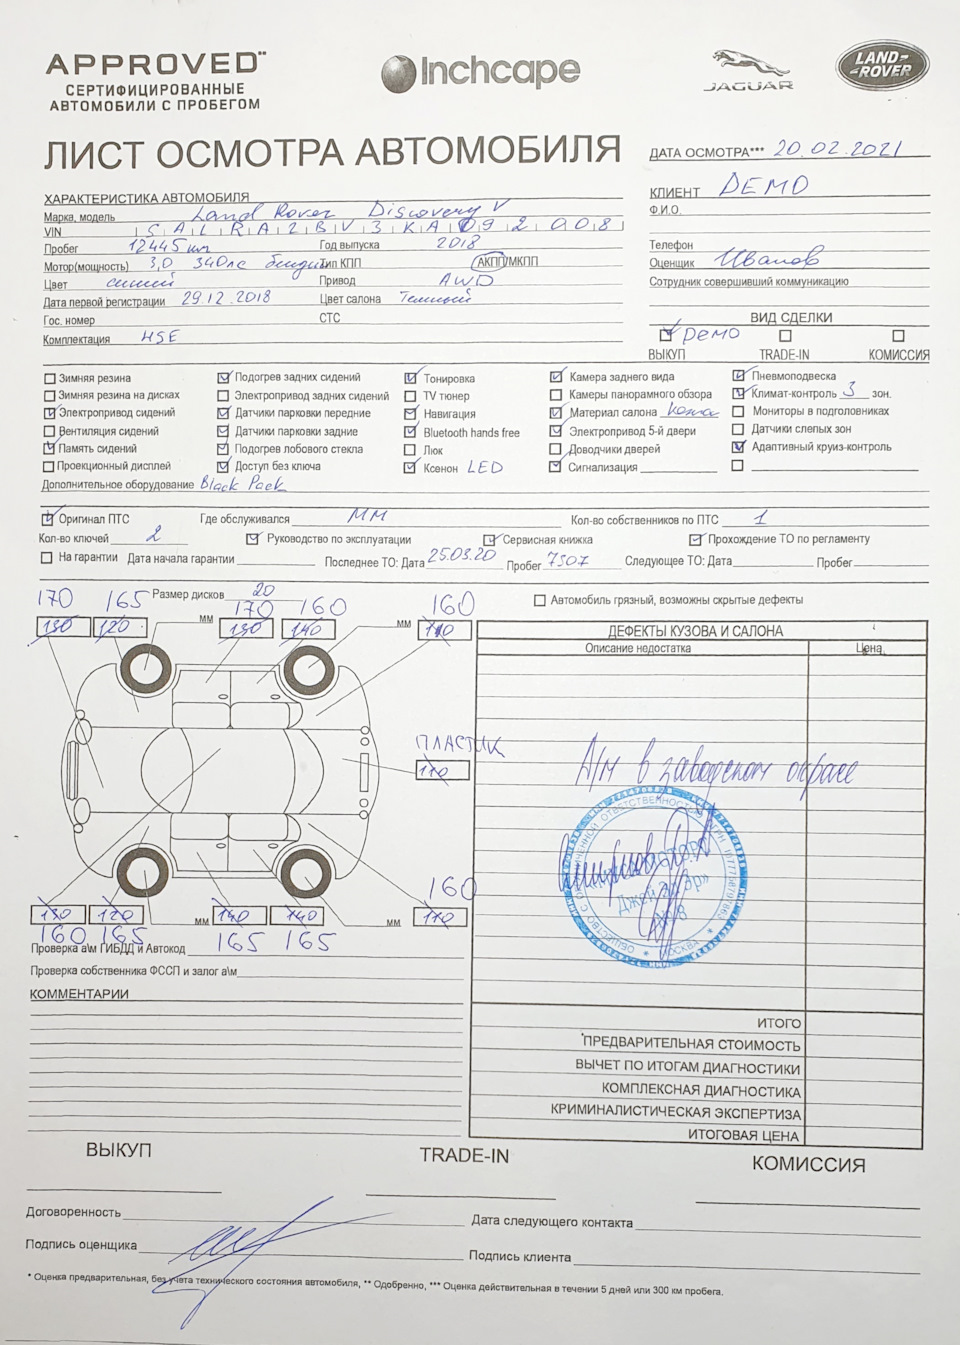 APPROVED**
СЕРТИФИЦИРОВАННЫЕ
АВТОМОБИЛИ С ПРОБЕГОМ
Inchcape
JAGUAR
LAND-
-ROVER
ЛИСТ ОСМОТРА АВТОМОБИЛЯ
ДАТА ОСМОТРА*** 20.02.2021
ХАРАКТЕРИСТИКА АВТОМОБИЛЯ
КЛИЕНТ DEMO
Ф.И.О.
Марка, модель Land Rover Discovery V
VIN SALRA2BV3KA092008
Пробег 12445 км Год выпуска 2018
Телефон
Мотор(мощность) 3,0 340лс бензин Тип КПП АКПП/МКПП
Оценщик Иванов
Цвет синий Привод AWD
Сотрудник совершивший коммуникацию
Дата первой регистрации 29.12.2018 Цвет салона Темный
Гос. номер СТС
Комплектация HSE
ВИД СДЕЛКИ
DEMO
ВЫКУП TRADE-IN КОМИССИЯ
Зимняя резина Подогрев задних сидений Тонировка Камера заднего вида Пневмоподвеска
Зимняя резина на дисках Электропривод задних сидений TV тюнер Камеры панорамного обзора Климат-контроль 3 зон.
Электропривод сидений Датчики парковки передние Навигация Материал салона кожа Мониторы в подголовниках
Вентиляция сидений Датчики парковки задние Bluetooth hands free Электропривод 5-й двери Датчики слепых зон
Память сидений Подогрев лобового стекла Люк Доводчики дверей Адаптивный круиз-контроль
Проекционный дисплей Доступ без ключа Ксенон LED Сигнализация
Дополнительное оборудование Black Pack
Оригинал ПТС Где обслуживался ММ Кол-во собственников по ПТС 1
Кол-во ключей 2 Руководство по эксплуатации Сервисная книжка Прохождение ТО по регламенту
На гарантии Дата начала гарантии Последнее ТО: Дата 25.03.20 Пробег 7507 Следующее ТО: Дата Пробег
Размер дисков 20
Автомобиль грязный, возможны скрытые дефекты
170 165 170 160 160
130 120 мм 130 140 мм 110
ДЕФЕКТЫ КУЗОВА И САЛОНА
Описание недостатка Цена
ПЛАСТИК
110
А/м в заводском окрасе
160
130 120 мм 140 140 мм 110
160 165 165 165
Проверка а\м ГИБДД и Автокод
Проверка собственника ФССП и залог а\м
КОММЕНТАРИИ
ИТОГО
*ПРЕДВАРИТЕЛЬНАЯ СТОИМОСТЬ
ВЫЧЕТ ПО ИТОГАМ ДИАГНОСТИКИ
КОМПЛЕКСНАЯ ДИАГНОСТИКА
КРИМИНАЛИСТИЧЕСКАЯ ЭКСПЕРТИЗА
ИТОГОВАЯ ЦЕНА
ВЫКУП TRADE-IN КОМИССИЯ
Договоренность Дата следующего контакта
Подпись оценщика Подпись клиента
* Оценка предварительная, без учета технического состояния автомобиля, ** Одобренно, *** Оценка действительная в течении 5 дней или 300 км пробега.